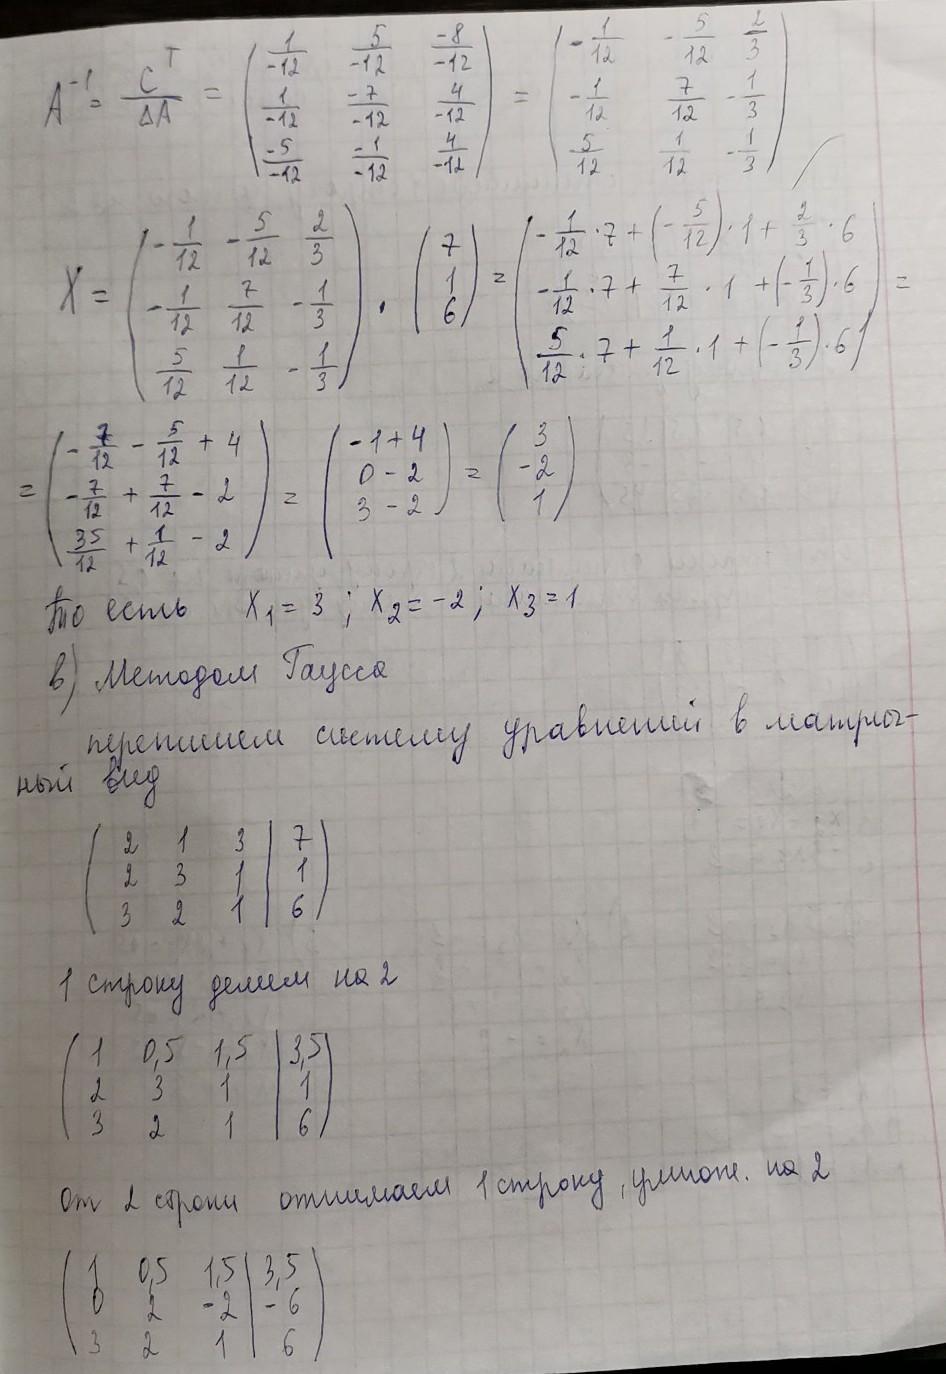 A⁻¹ = Cᵀ/ΔA = (1/-12 5/-12 -8/-12; 1/-12 -7/-12 4/-12; -5/-12 -1/-12 4/-12) = (-1/12 -5/12 2/3; -1/12 7/12 -1/3; 5/12 1/12 -1/3)
X = (-1/12 -5/12 2/3; -1/12 7/12 -1/3; 5/12 1/12 -1/3) · (7; 1; 6) = (-1/12·7+(-5/12)·1+2/3·6; -1/12·7+7/12·1+(-1/3)·6; 5/12·7+1/12·1+(-1/3)·6) =
= (-7/12-5/12+4; -7/12+7/12-2; 35/12+1/12-2) = (-1+4; 0-2; 3-2) = (3; -2; 1)
То есть X₁=3; X₂=-2; X₃=1
в) Методом Гаусса
перепишем систему уравнений в матрич-
ный вид
(2 1 3 | 7
2 3 1 | 1
3 2 1 | 6)
1 строку делим на 2
(1 0,5 1,5 | 3,5
2 3 1 | 1
3 2 1 | 6)
От 2 строки отнимаем 1 строку, умнож. на 2
(1 0,5 1,5 | 3,5
0 2 -2 | -6
3 2 1 | 6)